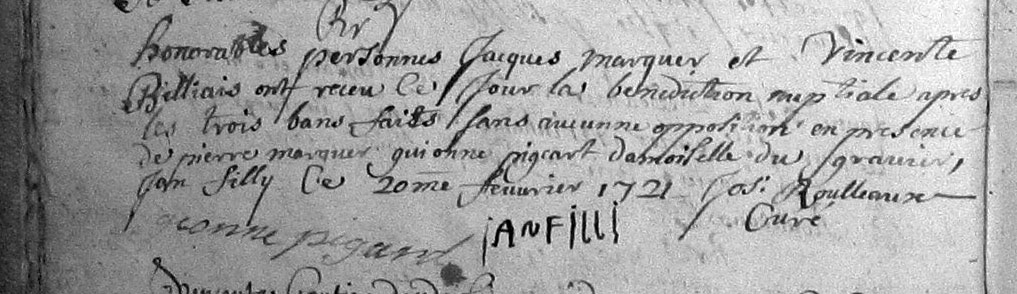 honorables personnes Jacques marquer et Vincente
Billiais ont receu Ce Jour la benediction nuptiale apres
les trois bans faits sans aucunne opposition en presence
de pierre marquer guionne pigeart damoiselle du gravier,
Jan filly Ce 20me feuvrier 1721 Jos. Roulleaux
Curé
pigeard jANFilli